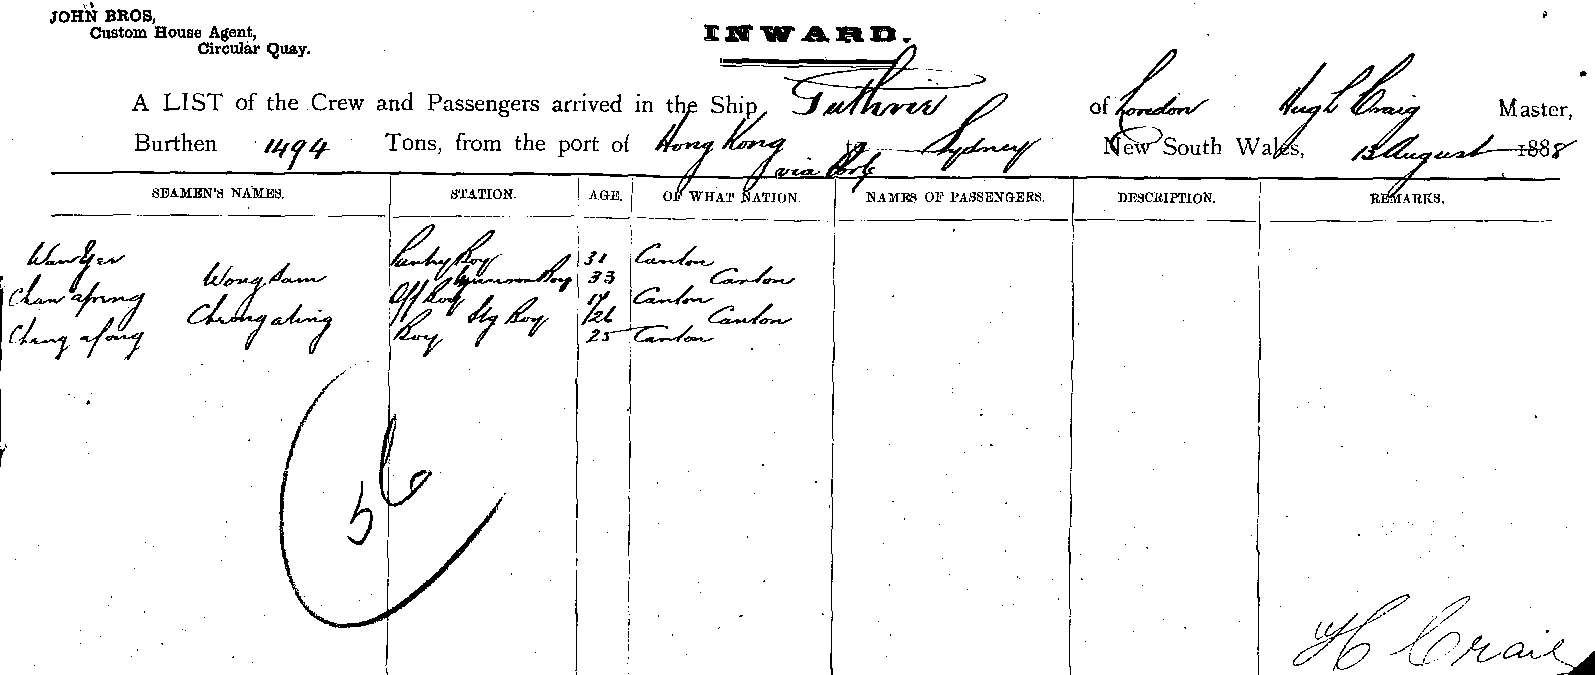 JOHN BROS,
Custom House Agent,
Circular Quay.
INWARD.
A LIST of the Crew and Passengers arrived in the Ship Guthrie of London Hugh Craig Master,
Burthen 1494 Tons, from the port of Hong Kong to Sydney New South Wales, 13 August 1888
via
SEAMEN'S NAMES. STATION. AGE. OF WHAT NATION. NAMES OF PASSENGERS. DESCRIPTION. REMARKS.
Pantry Boy 31 Canton
Wong Sam Boy 33 Canton
Boy Canton
Boy 26 Canton
Boy 25 Canton
56
H Craig